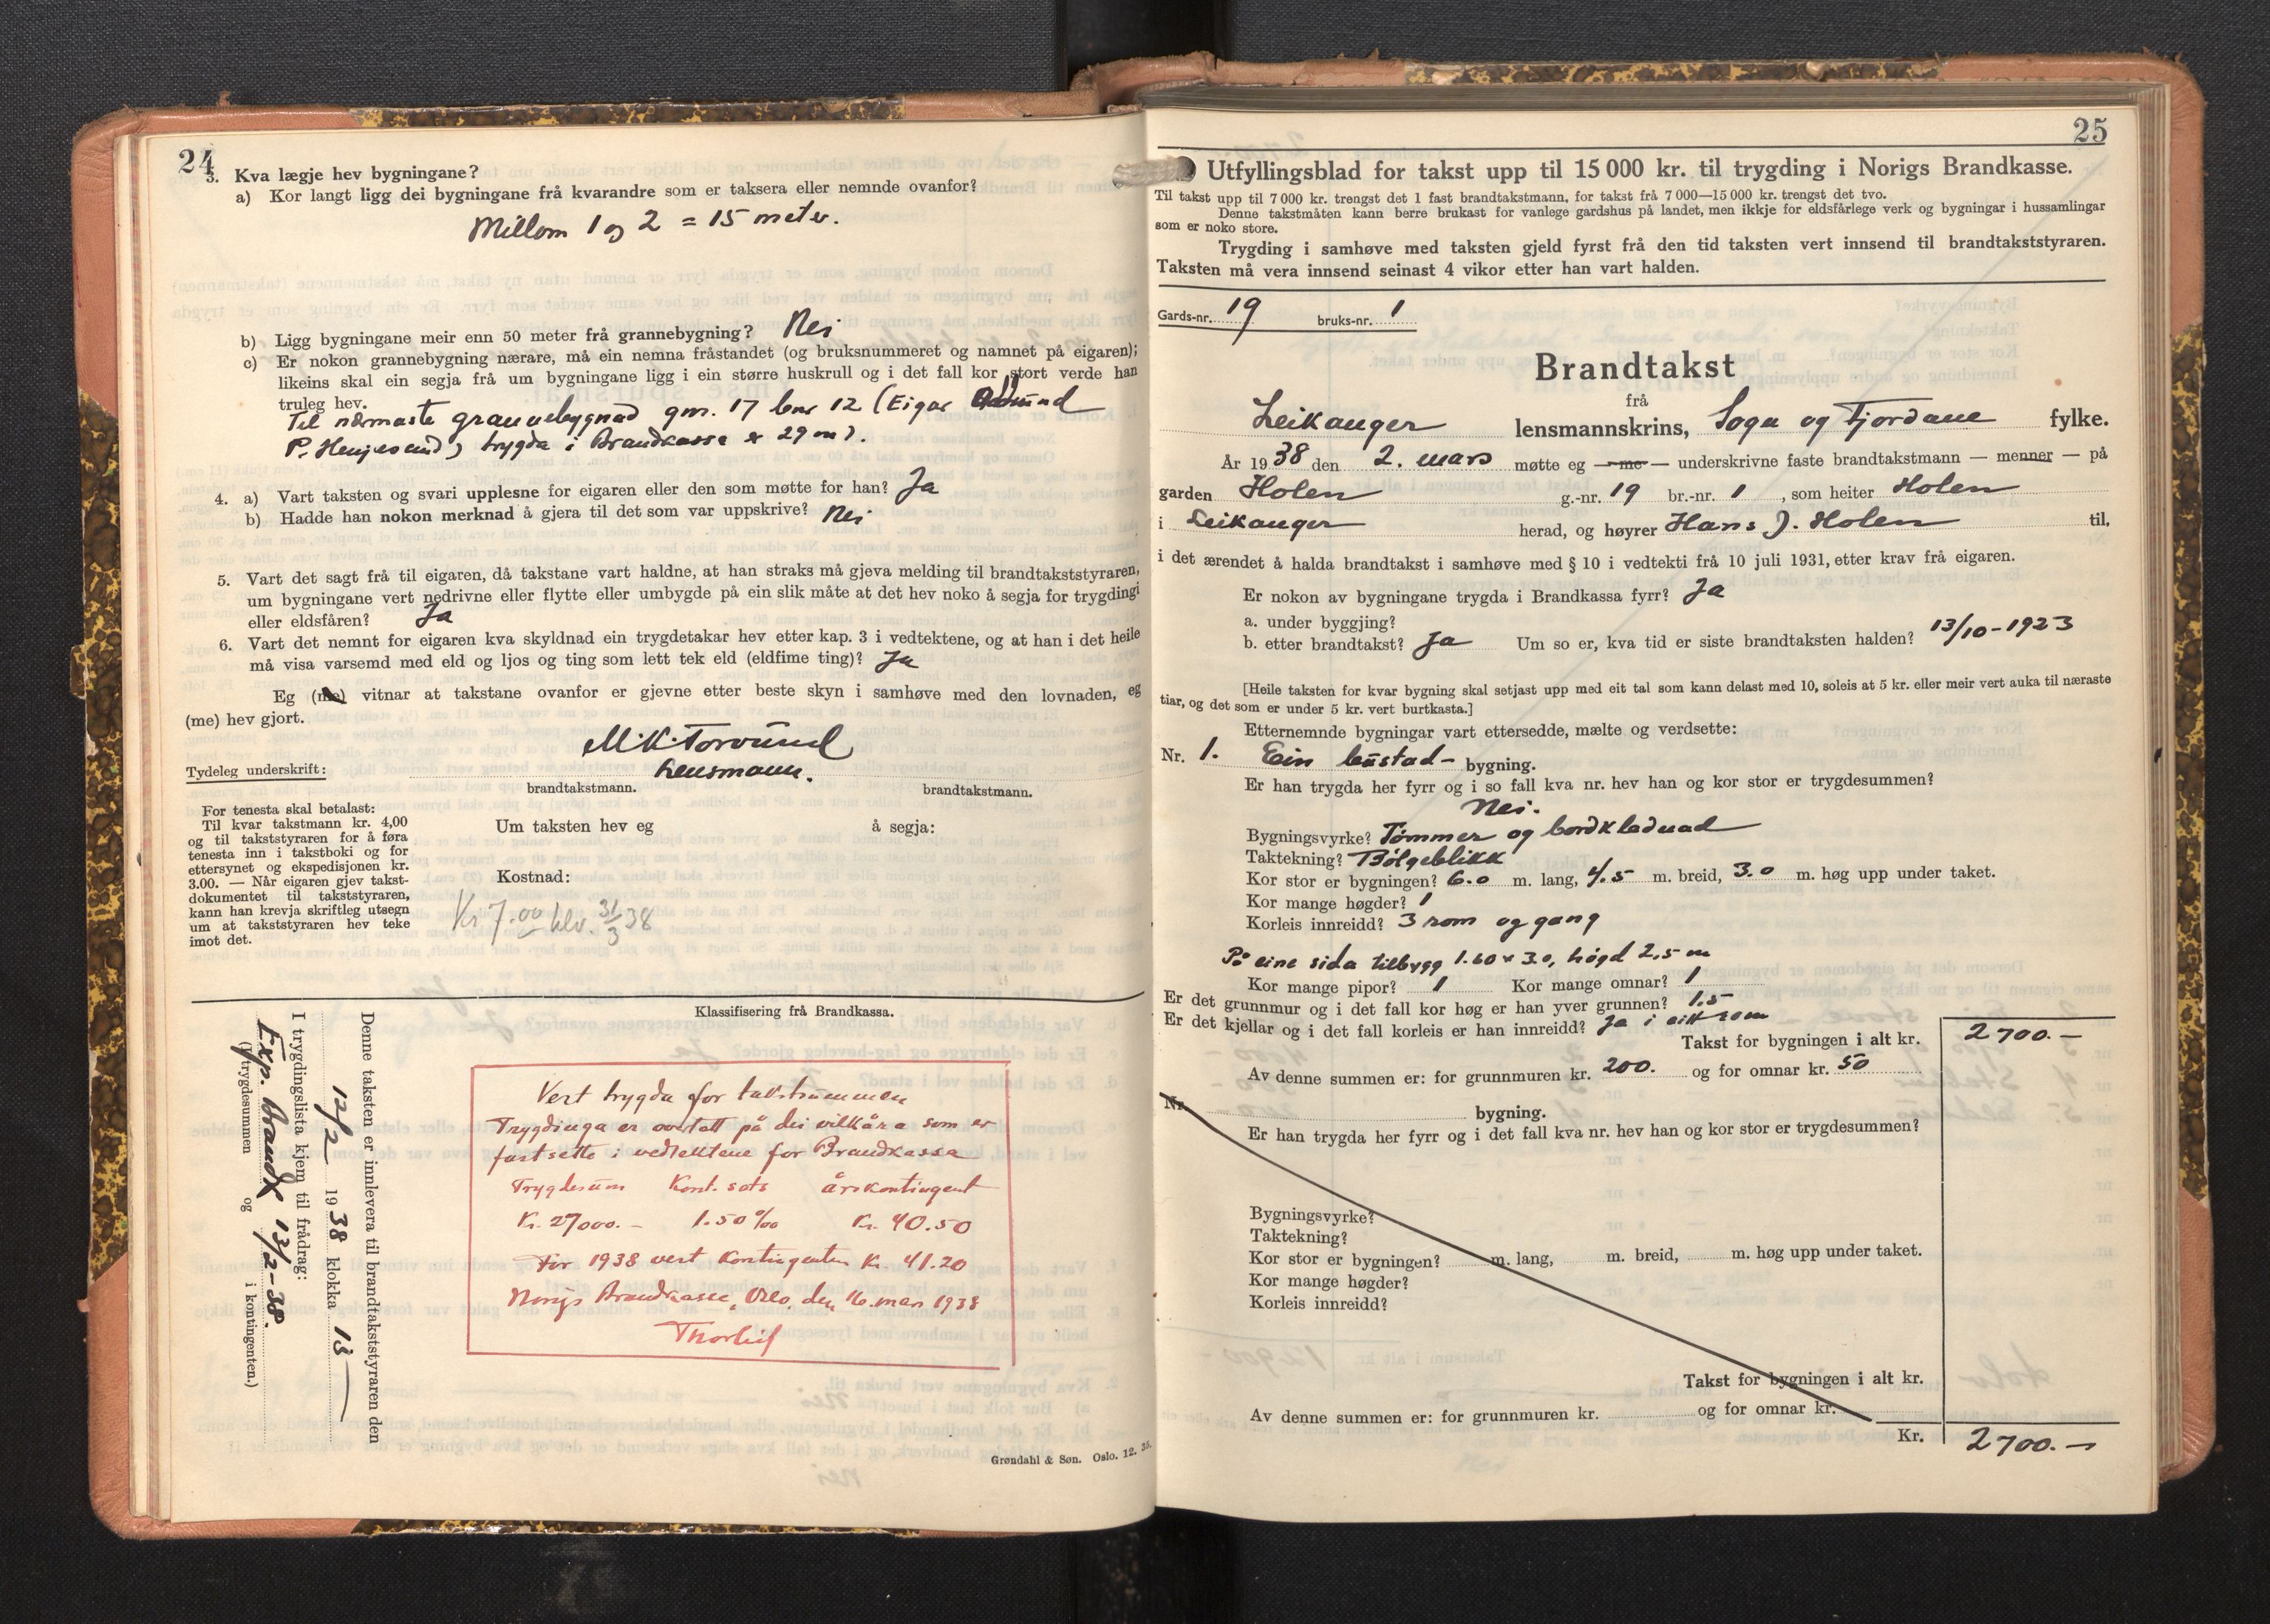 24
3. Kva lægje hev bygningane?
a) Kor langt ligg dei bygningane frå kvarandre som er taksera eller nemnde ovanfor?
Millom 1 og 2 = 15 meter.
b) Ligg bygningane meir enn 50 meter frå grannebygning? Nei
c) Er nokon grannebygning nærare, må ein nemna fråstandet (og bruksnummeret og namnet på eigaren);
likeins skal ein segja frå um bygningane ligg i ein større huskrull og i det fall kor stort verde han
truleg hev.
Til nærmaste grannebygnad gnr. 17 bnr 12 (Eigar
P. Henjesand) trygda i Brandkassa er 29 m).
4. a) Vart taksten og svari upplesne for eigaren eller den som møtte for han? Ja
b) Hadde han nokon merknad å gjera til det som var uppskrive? Nei
5. Vart det sagt frå til eigaren, då takstane vart haldne, at han straks må gjeva melding til brandtakststyraren,
um bygningane vert nedrivne eller flytte eller umbygde på ein slik måte at det hev noko å segja for trygdingi
eller eldsfåren? Ja
6. Vart det nemnt for eigaren kva skyldnad ein trygdetakar hev etter kap. 3 i vedtektene, og at han i det heile
må visa varsemd med eld og ljos og ting som lett tek eld (eldfime ting)? Ja
Eg (me) vitnar at takstane ovanfor er gjevne etter beste skyn i samhøve med den lovnaden, eg
(me) hev gjort.
M. K. Torvund
Tydeleg underskrift: Lensmann.
brandtakstmann. brandtakstmann.
For tenesta skal betalast:
Til kvar takstmann kr. 4,00
og til takststyraren for å føra
tenesta inn i takstboki og for
ettersynet og ekspedisjonen kr.
3.00. — Når eigaren gjev takst-
dokumentet til takststyraren,
kann han krevja skriftleg utsegn
um at takststyraren hev teke
imot det.
Um taksten hev eg å segja:
Kostnad:
Kr 7.00 blv. 31/3 38
Klassifisering frå Brandkassa.
Denne taksten er innlevera til brandtakststyraren den
12/2 1938 klokka 13
I trygdingslista kjem til frådrag:
Exp. Brandk 13/2-38.
(i trygdesummen og i kontingenten.)
Vert trygda for takstsummen
Trygdinga er avslått på dei vilkåra som er
fastsette i vedtektene for Brandkassa
Trygdesum Kont. sats årskontingent
Kr. 27000.- 1.50 ‰ Kr. 40.50
For 1938 vert kontingenten Kr. 41.20
Norigs Brandkasse, Oslo, den 16. mars 1938
Grøndahl & Søn. Oslo. 12. 35.
25
Utfyllingsblad for takst upp til 15 000 kr. til trygding i Norigs Brandkasse.
Til takst upp til 7 000 kr. trengst det 1 fast brandtakstmann, for takst frå 7 000—15 000 kr. trengst det tvo.
Denne takstmåten kann berre brukast for vanlege gardshus på landet, men ikkje for eldsfårlege verk og bygningar i hussamlingar
som er noko store.
Trygding i samhøve med taksten gjeld fyrst frå den tid taksten vert innsend til brandtakststyraren.
Taksten må vera innsend seinast 4 vikor etter han vart halden.
Gards-nr. 19 bruks-nr. 1
Brandtakst
frå
Leikanger lensmannskrins, Sogn og Fjordane fylke.
År 1938 den 2. mars møtte eg — me — underskrivne faste brandtakstmann — menner — på
garden Holen g.-nr. 19 br.-nr. 1, som heiter Holen
i Leikanger herad, og høyrer Hans J. Holen til,
i det ærendet å halda brandtakst i samhøve med § 10 i vedtekti frå 10 juli 1931, etter krav frå eigaren.
Er nokon av bygningane trygda i Brandkassa fyrr? Ja
a. under byggjing?
b. etter brandtakst? Ja Um so er, kva tid er siste brandtaksten halden? 13/10-1923
[Heile taksten for kvar bygning skal setjast upp med eit tal som kann delast med 10, soleis at 5 kr. eller meir vert auka til næraste
tiar, og det som er under 5 kr. vert burtkasta.]
Etternemnde bygningar vart ettersedde, mælte og verdsette:
Nr. 1. Ein bustad- bygning.
Er han trygda her fyrr og i so fall kva nr. hev han og kor stor er trygdesummen?
Nei.
Bygningsvyrke? Tømmer og bordkladnad
Taktekning? Bølgeblikk
Kor stor er bygningen? 6.0 m. lang, 4.5 m. breid, 3.0 m. høg upp under taket.
Kor mange høgder? 1
Korleis innreidd? 3 rom og gang
På eine sida tilbygg 1.60 x 3.0, høgd 2.5 m
Kor mange pipor? 1 Kor mange omnar? 1
Er det grunnmur og i det fall kor høg er han yver grunnen? 1.5
Er det kjellar og i det fall korleis er han innreidd? Ja i eitt rom
Takst for bygningen i alt kr. 2700.-
Av denne summen er: for grunnmuren kr. 200. og for omnar kr. 50
Nr. bygning.
Er han trygda her fyrr og i det fall kva nr. hev han og kor stor er trygdesummen?
Bygningsvyrke?
Taktekning?
Kor stor er bygningen? m. lang, m. breid, m. høg upp under taket.
Kor mange høgder?
Korleis innreidd?
Takst for bygningen i alt kr.
Av denne summen er: for grunnmuren kr. og for omnar kr.
Kr. 2700.-